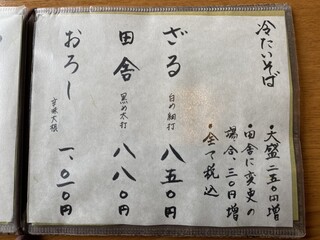 冷たいそば
・大盛二五〇円増
・田舎に変更の
場合、三〇円増
・全て税込
ざる
白め細打
八五〇円
田舎
黒め太打
八八〇円
おろし
一、〇一〇円